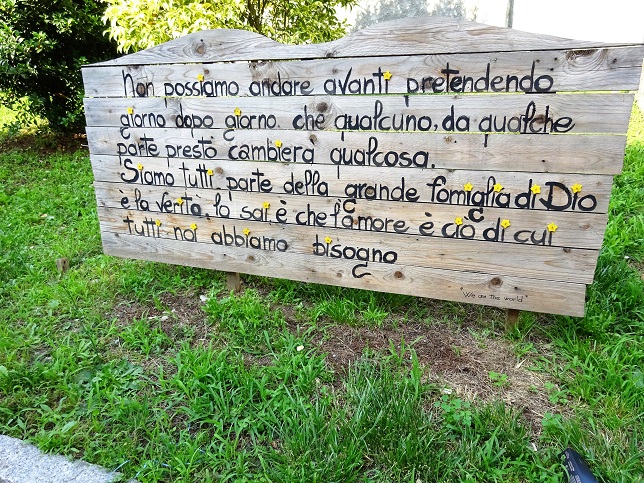 Non possiamo andare avanti pretendendo
giorno dopo giorno, che qualcuno, da qualche
parte presto cambierà qualcosa.
Siamo tutti parte della grande famiglia di Dio
è la verità, lo sai, è che l'amore è ciò di cui
tutti noi abbiamo bisogno
"We are the world"